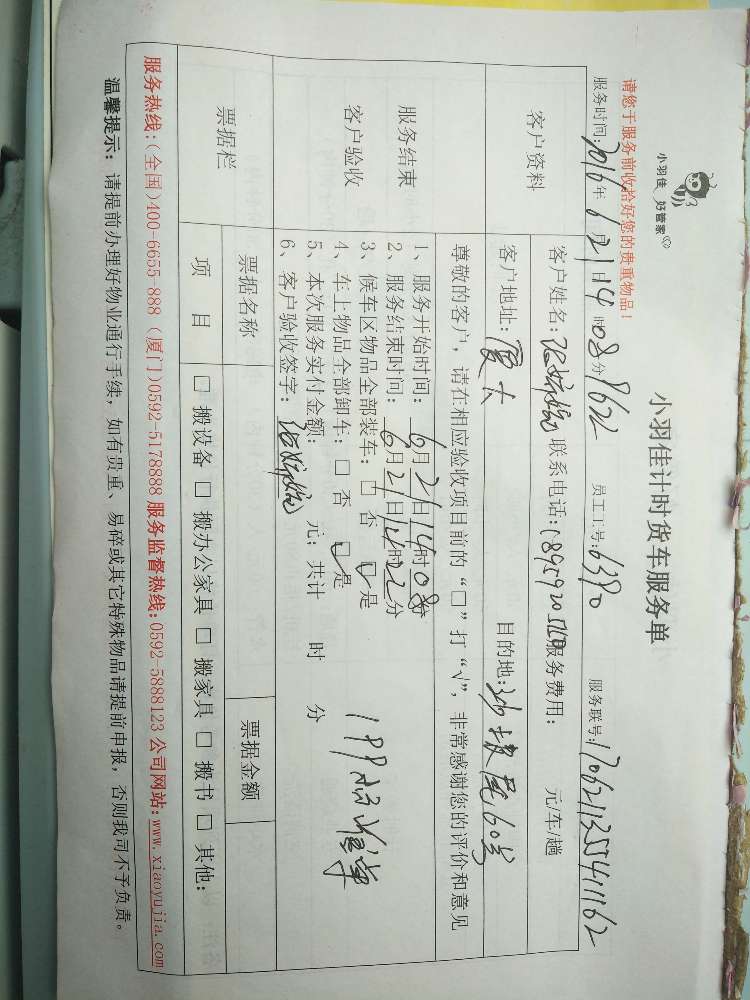 小羽佳 好管家
小羽佳计时货车服务单
请您于服务前收拾好您的贵重物品！
服务时间:2016年6月21日14时08分 员工工号:6380 服务联号:170621135541162
客户资料
客户姓名: 联系电话: 服务费用: 元/车/趟
客户地址:厦大 目的地:沙坡尾60号
服务结束
客户验收
尊敬的客户，请在相应验收项目前的“□”打“√”，非常感谢您的评价和意见
1、服务开始时间：6月21日14时08分
2、服务结束时间：6月21日14时22分
3、候车区物品全部装车：□ 否 □是
4、车上物品全部卸车：□ 否 □是
5、本次服务实付金额： 元；共计 时 分
6、客户验收签字：
票据栏
票据名称 票据金额
项 目 □ 搬设备 □ 搬办公家具 □ 搬家具 □ 搬书 □ 其他:
服务热线:(全国)400-6655-888 (厦门)0592-5178888 服务监督热线:0592-5888123 公司网站:www.xiaoyujia.com
温馨提示：请提前办理好物业通行手续，如有贵重、易碎或其它特殊物品请提前申报，否则我司不予负责。